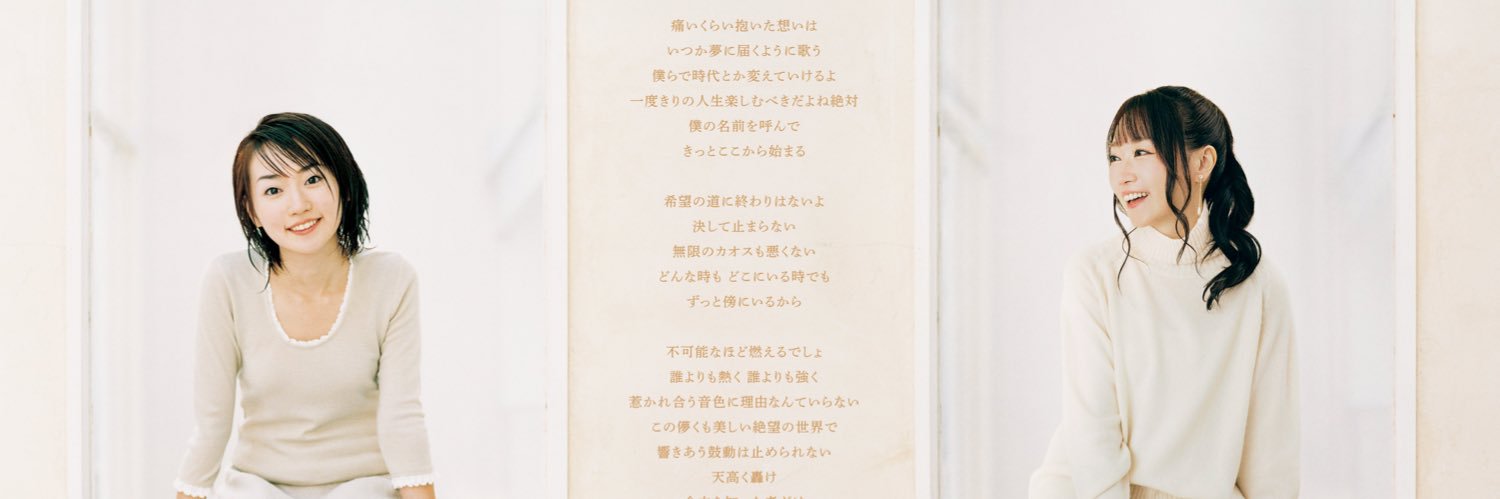 痛いくらい抱いた想いは
いつか夢に届くように歌う
僕らで時代とか変えていけるよ
一度きりの人生楽しむべきだよね絶対
僕の名前を呼んで
きっとここから始まる
希望の道に終わりはないよ
決して止まらない
無限のカオスも悪くない
どんな時も どこにいる時でも
ずっと傍にいるから
不可能なほど燃えるでしょ
誰よりも熱く 誰よりも強く
惹かれ合う音色に理由なんていらない
この儚くも美しい絶望の世界で
響きあう鼓動は止められない
天高く轟け